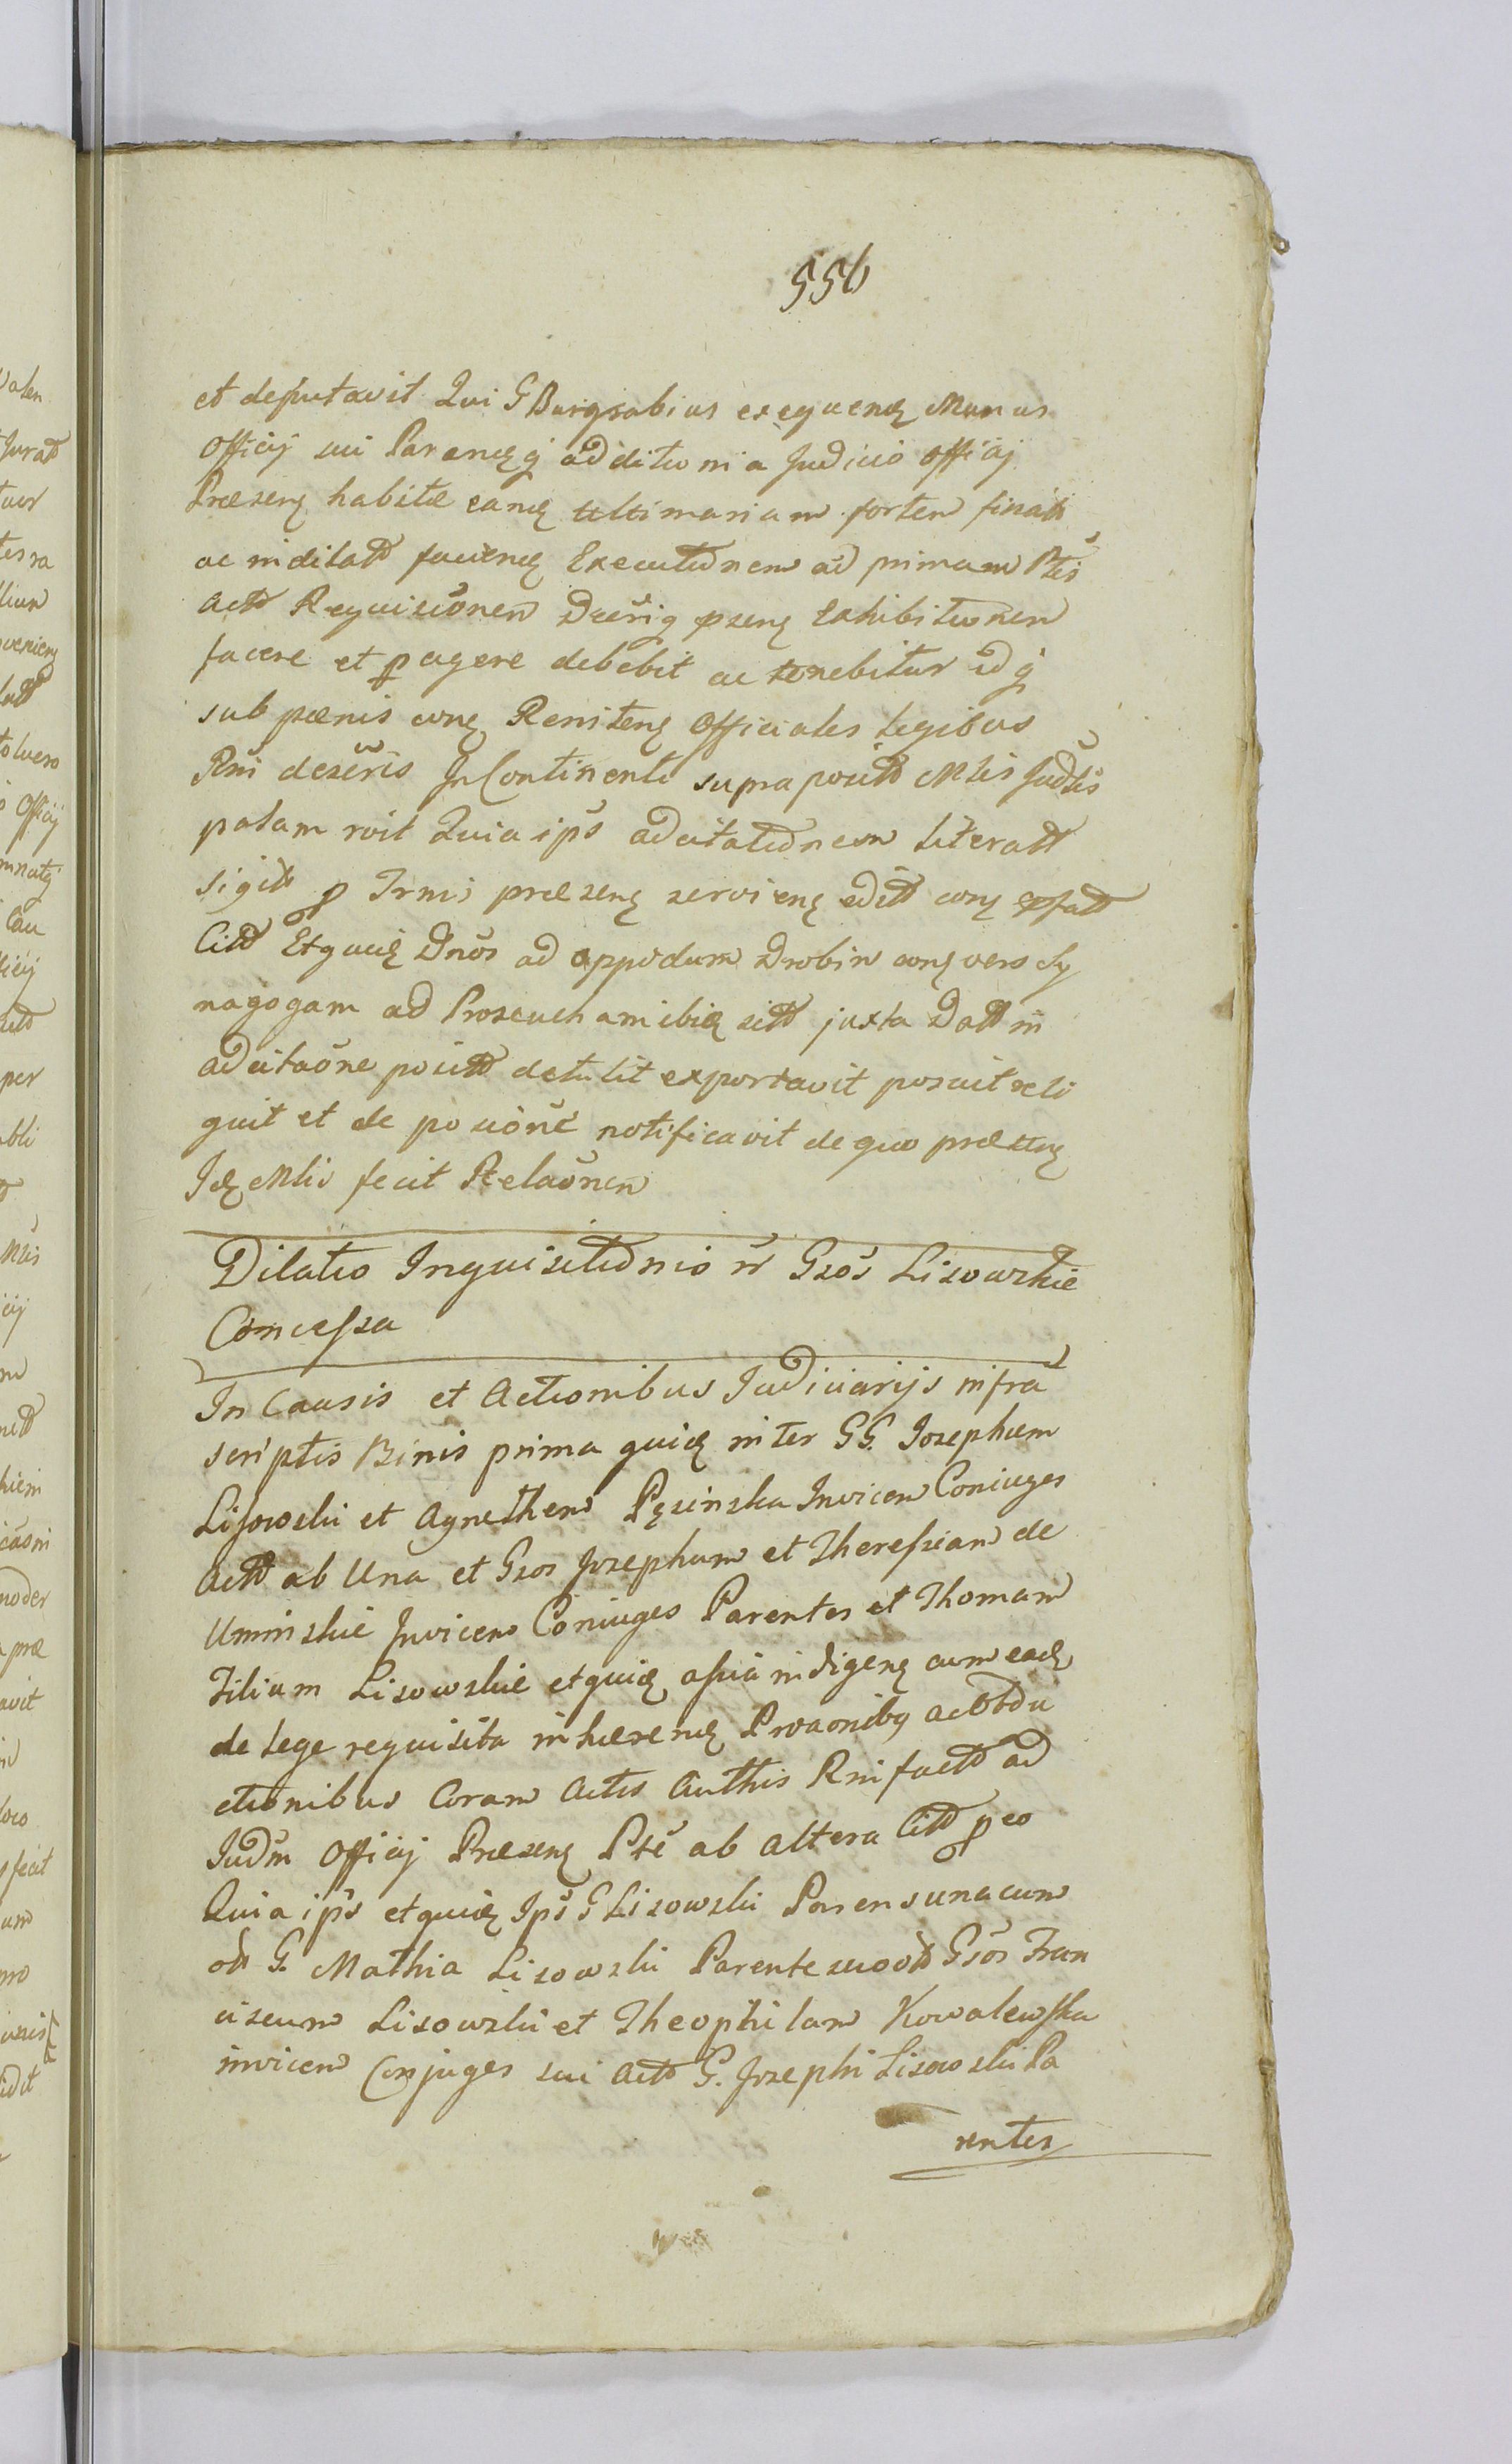 556
et deputavit Qui G Burgrabius exequenꝫ Munus
Officij sui Parendꝫ q̃ additioni a Judicio Officij
Præsenꝫ habitæ eandꝫ ultimariam fortem
ac indilatt faciendꝫ Executionem ad primam Ptis
Actt Requisiōnem Decrīq pꝛsenꝫ Exhibitionem
facere et ꝑagere debebit ac tenebitur id q̃
sub pœnis conꝫ Renitenꝫ Officiales legibus
Rni desēris In Continenti supra positt Mtis Judtīs
palam roit Quia ips̃ adcitationem literatt
sigitt ꝑ Trmis præsenꝫ servienꝫ editt conꝫ
Citt Et quidꝫ Dnos ad oppidum Drobin conꝫ vero Sy
nagogam ad Proseucham ibidꝫ sitt juxta Datt in
adcitaōne positt detulit exportavit posuit reli
quit et de posiōne notificavit de quo præsenꝫ
Idꝫ Mlis fecit Relaōnem
Dilatio Inquisitionis ñ Gsōs Lisowskie
Concessa
In Causis et Actionibus Judiciarijs infra
scriptis Binis prima quidꝫ inter GG. Josephum
Lisowski et Agnethem Pęsinska Invicem Coniuges
Actt ab Una et Gsos Josephum et Theressiam de
Uminskie Invicem Coniuges Parentes et Thomam
Filium Lisowskie et quidꝫ assiā indigenꝫ cum eadꝫ
de lege requisita inhærendꝫ Pvaonibꝫ ac Obdu
ctionibus Coram Actis Autthis Rni factt ad
Judm Officij Præsenꝫ Pte ab altera Citt ꝑ eo
Quia ips̃ et quidꝫ Ips̃ G Lisowski Parens una cum
olt G. Mathia Lisowski Parente suo olt Gsōs Fran
ciscum Lisowski et Theophilam Kowalewska
invicem Conjuges sui Actt G. Josephi Lisowski Pa
rentes